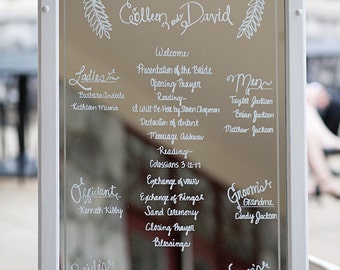 Colleen and David
Welcome
Presentation of the Bride
Opening Prayer
Reading-
I Will Be Here by Steven Chapman
Declaration of Intent
Marriage Address
Reading-
Colossians 3:12-17
Exchange of vows
Exchange of Rings
Sand Ceremony
Closing Prayer
Blessings
Ladies
Barbara
Kathleen
Officiant
Kenneth Kilby
Men
Taylor Jackson
Brian Jackson
Matthew Jackson
Groom's
Grandma
Candy Jackson
Groom's